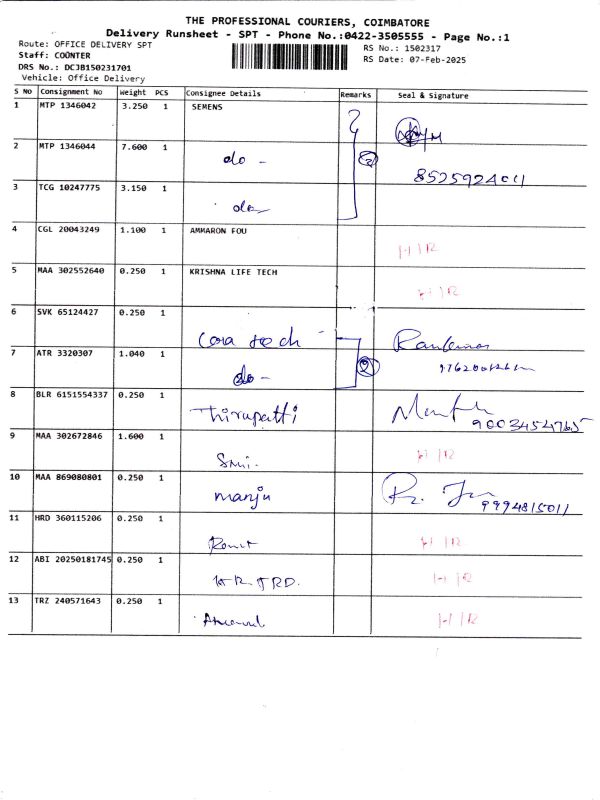 THE PROFESSIONAL COURIERS, COIMBATORE
Delivery Runsheet - SPT - Phone No.:0422-3505555 - Page No.:1
Route: OFFICE DELIVERY SPT RS No.: 1502317
Staff: COUNTER RS Date: 07-Feb-2025
DRS No.: DCJB150231701
Vehicle: Office Delivery
S NO Consignment No Weight PCS Consignee Details Remarks Seal & Signature
1 MTP 1346042 3.250 1 SEMENS
2 MTP 1346044 7.600 1 do - 8525924011
3 TCG 10247775 3.150 1 do
4 CGL 20043249 1.100 1 AMMARON FOU H/R
5 MAA 302552640 0.250 1 KRISHNA LIFE TECH H/R
6 SVK 65124427 0.250 1 Cora tech
7 ATR 3320307 1.040 1 do -
8 BLR 6151554337 0.250 1 Thirupatti 9003454765
9 MAA 302672846 1.600 1 H/R
10 MAA 869080801 0.250 1 manju 9994815011
11 HRD 360115206 0.250 1 H/R
12 ABI 20250181745 0.250 1 H/R
13 TRZ 240571643 0.250 1 H/R